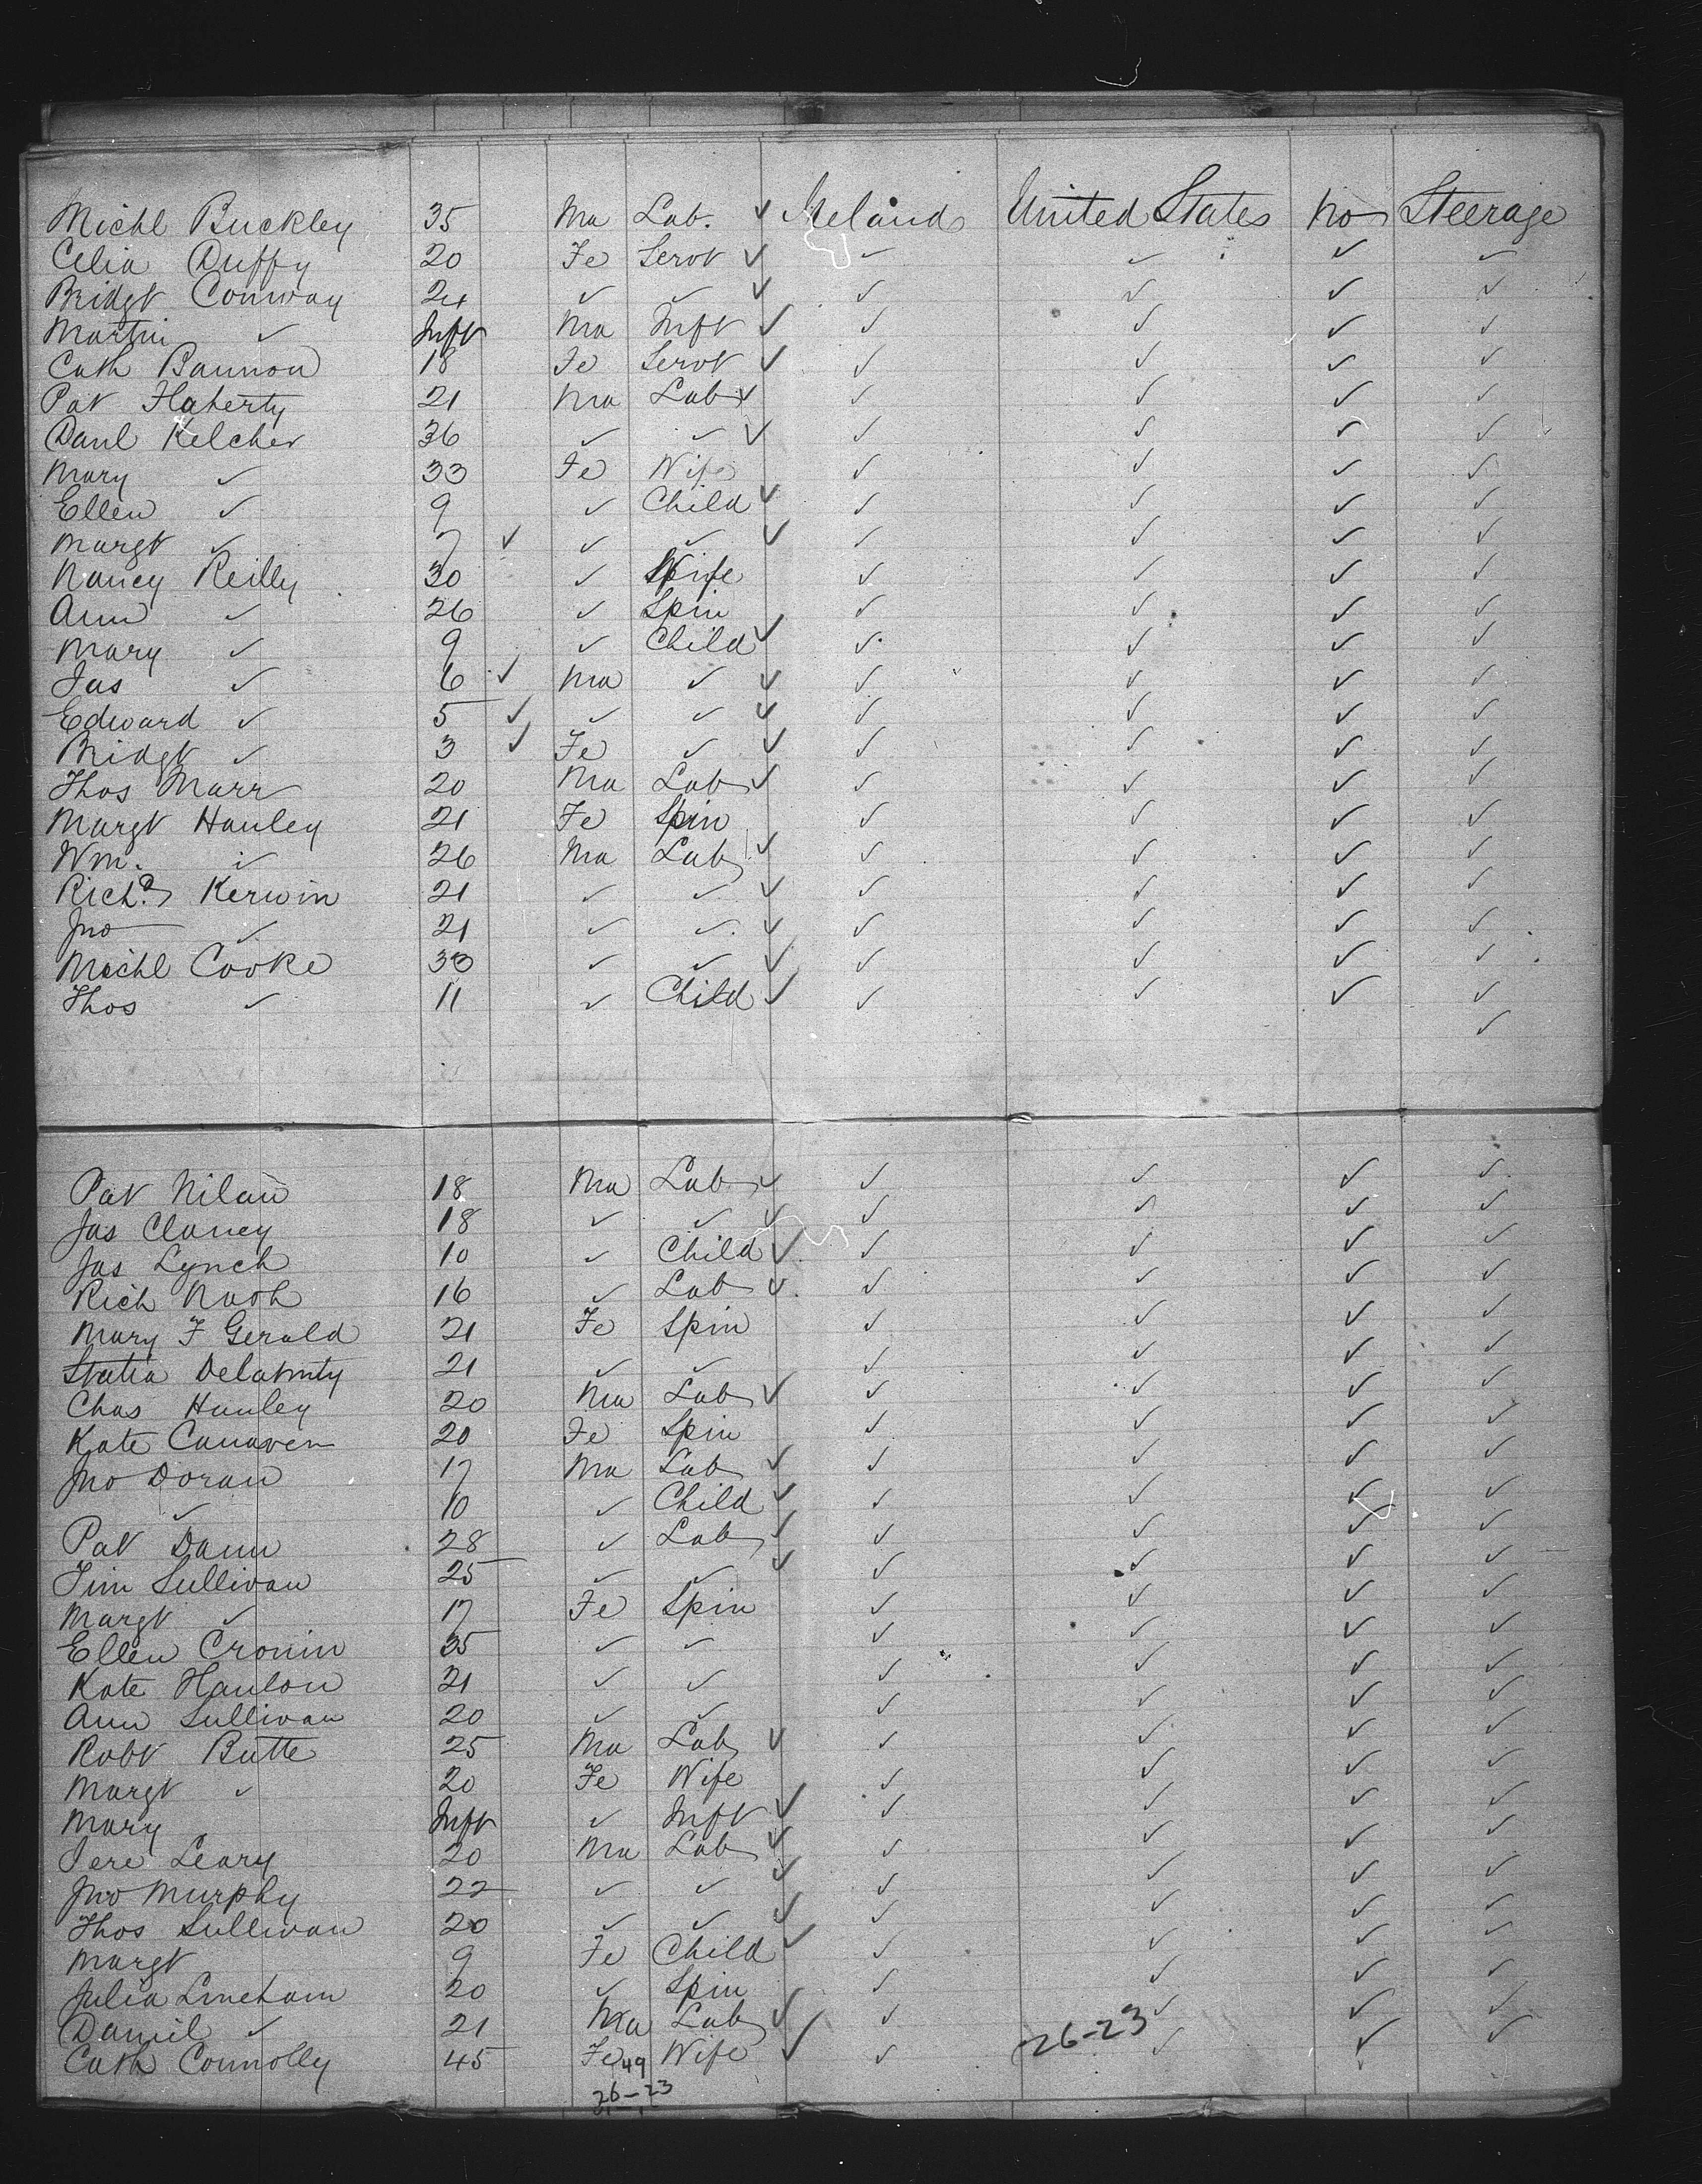 Michl Buckley 35 Ma Lab. ✓ Ireland United States No Steerage
Celia Duffy 20 Fe Servt ✓ ✓ ✓ ✓ ✓
Bridgt Conway 24 ✓ ✓ ✓ ✓ ✓ ✓ ✓
Martin ✓ Inft Ma Inft ✓ ✓ ✓ ✓ ✓
Cath Bannon 18 Fe Servt ✓ ✓ ✓ ✓ ✓
Pat Flaherty 21 Ma Lab ✓ ✓ ✓ ✓ ✓
Danl Kelcher 36 ✓ ✓ ✓ ✓ ✓ ✓ ✓
Mary ✓ 33 Fe Wife ✓ ✓ ✓ ✓
Ellen ✓ 9 ✓ Child ✓ ✓ ✓ ✓ ✓
Margt ✓ 7 ✓ ✓ ✓ ✓ ✓ ✓ ✓ ✓
Nancy Reilly 30 ✓ Wife ✓ ✓ ✓ ✓
Ann ✓ 26 ✓ Spin ✓ ✓ ✓ ✓
Mary ✓ 9 ✓ Child ✓ ✓ ✓ ✓ ✓
Jas ✓ 6 ✓ Ma ✓ ✓ ✓ ✓ ✓ ✓
Edward ✓ 5 ✓ ✓ ✓ ✓ ✓ ✓ ✓ ✓
Bridgt ✓ 3 ✓ Fe ✓ ✓ ✓ ✓ ✓ ✓
Thos Marr 20 Ma Lab ✓ ✓ ✓ ✓ ✓
Margt Hanley 21 Fe Spin ✓ ✓ ✓ ✓
Wm. ✓ 26 Ma Lab ✓ ✓ ✓ ✓ ✓
Richd Kerwin 21 ✓ ✓ ✓ ✓ ✓ ✓ ✓
Jno ✓ 21 ✓ ✓ ✓ ✓ ✓ ✓ ✓
Michl Cooke 33 ✓ ✓ ✓ ✓ ✓ ✓ ✓
Thos ✓ 11 ✓ Child ✓ ✓ ✓ ✓ ✓
✓
Pat Nilan 18 Ma Lab ✓ ✓ ✓ ✓ ✓
Jas Clancy 18 ✓ ✓ ✓ ✓ ✓ ✓ ✓
Jas Lynch 10 ✓ Child ✓ ✓ ✓ ✓ ✓
Rich Nash 16 ✓ Lab ✓ ✓ ✓ ✓ ✓
Mary F Gerald 21 Fe Spin ✓ ✓ ✓ ✓
Statia Delahnty 21 ✓ ✓ ✓ ✓ ✓ ✓
Chas Hanley 20 Ma Lab ✓ ✓ ✓ ✓ ✓
Kate Canaven 20 Fe Spin ✓ ✓ ✓ ✓
Jno Doran 17 Ma Lab ✓ ✓ ✓ ✓ ✓
✓ 10 ✓ Child ✓ ✓ ✓ ✓ ✓
Pat Dann 28 ✓ Lab ✓ ✓ ✓ ✓ ✓
Tim Sullivan 25 ✓ ✓ ✓ ✓ ✓ ✓ ✓
Margt ✓ 17 Fe Spin ✓ ✓ ✓ ✓
Ellen Cronin 35 ✓ ✓ ✓ ✓ ✓ ✓
Kate Hanlon 21 ✓ ✓ ✓ ✓ ✓ ✓
Ann Sullivan 20 ✓ ✓ ✓ ✓ ✓ ✓
Robt Butte 25 Ma Lab ✓ ✓ ✓ ✓ ✓
Margt ✓ 20 Fe Wife ✓ ✓ ✓ ✓
Mary Inft ✓ Inft ✓ ✓ ✓ ✓ ✓
Jere Leary 20 Ma Lab ✓ ✓ ✓ ✓ ✓
Jno Murphy 22 ✓ ✓ ✓ ✓ ✓ ✓ ✓
Thos Sullivan 20 ✓ ✓ ✓ ✓ ✓ ✓ ✓
Margt 9 Fe Child ✓ ✓ ✓ ✓ ✓
Julia Lineham 20 ✓ Spin ✓ ✓ ✓ ✓
Daniel ✓ 21 Ma Lab ✓ ✓ ✓ ✓ ✓
Cath Connolly 45 Fe 49 Wife ✓ ✓ 26-23 ✓ ✓ ✓
26-23